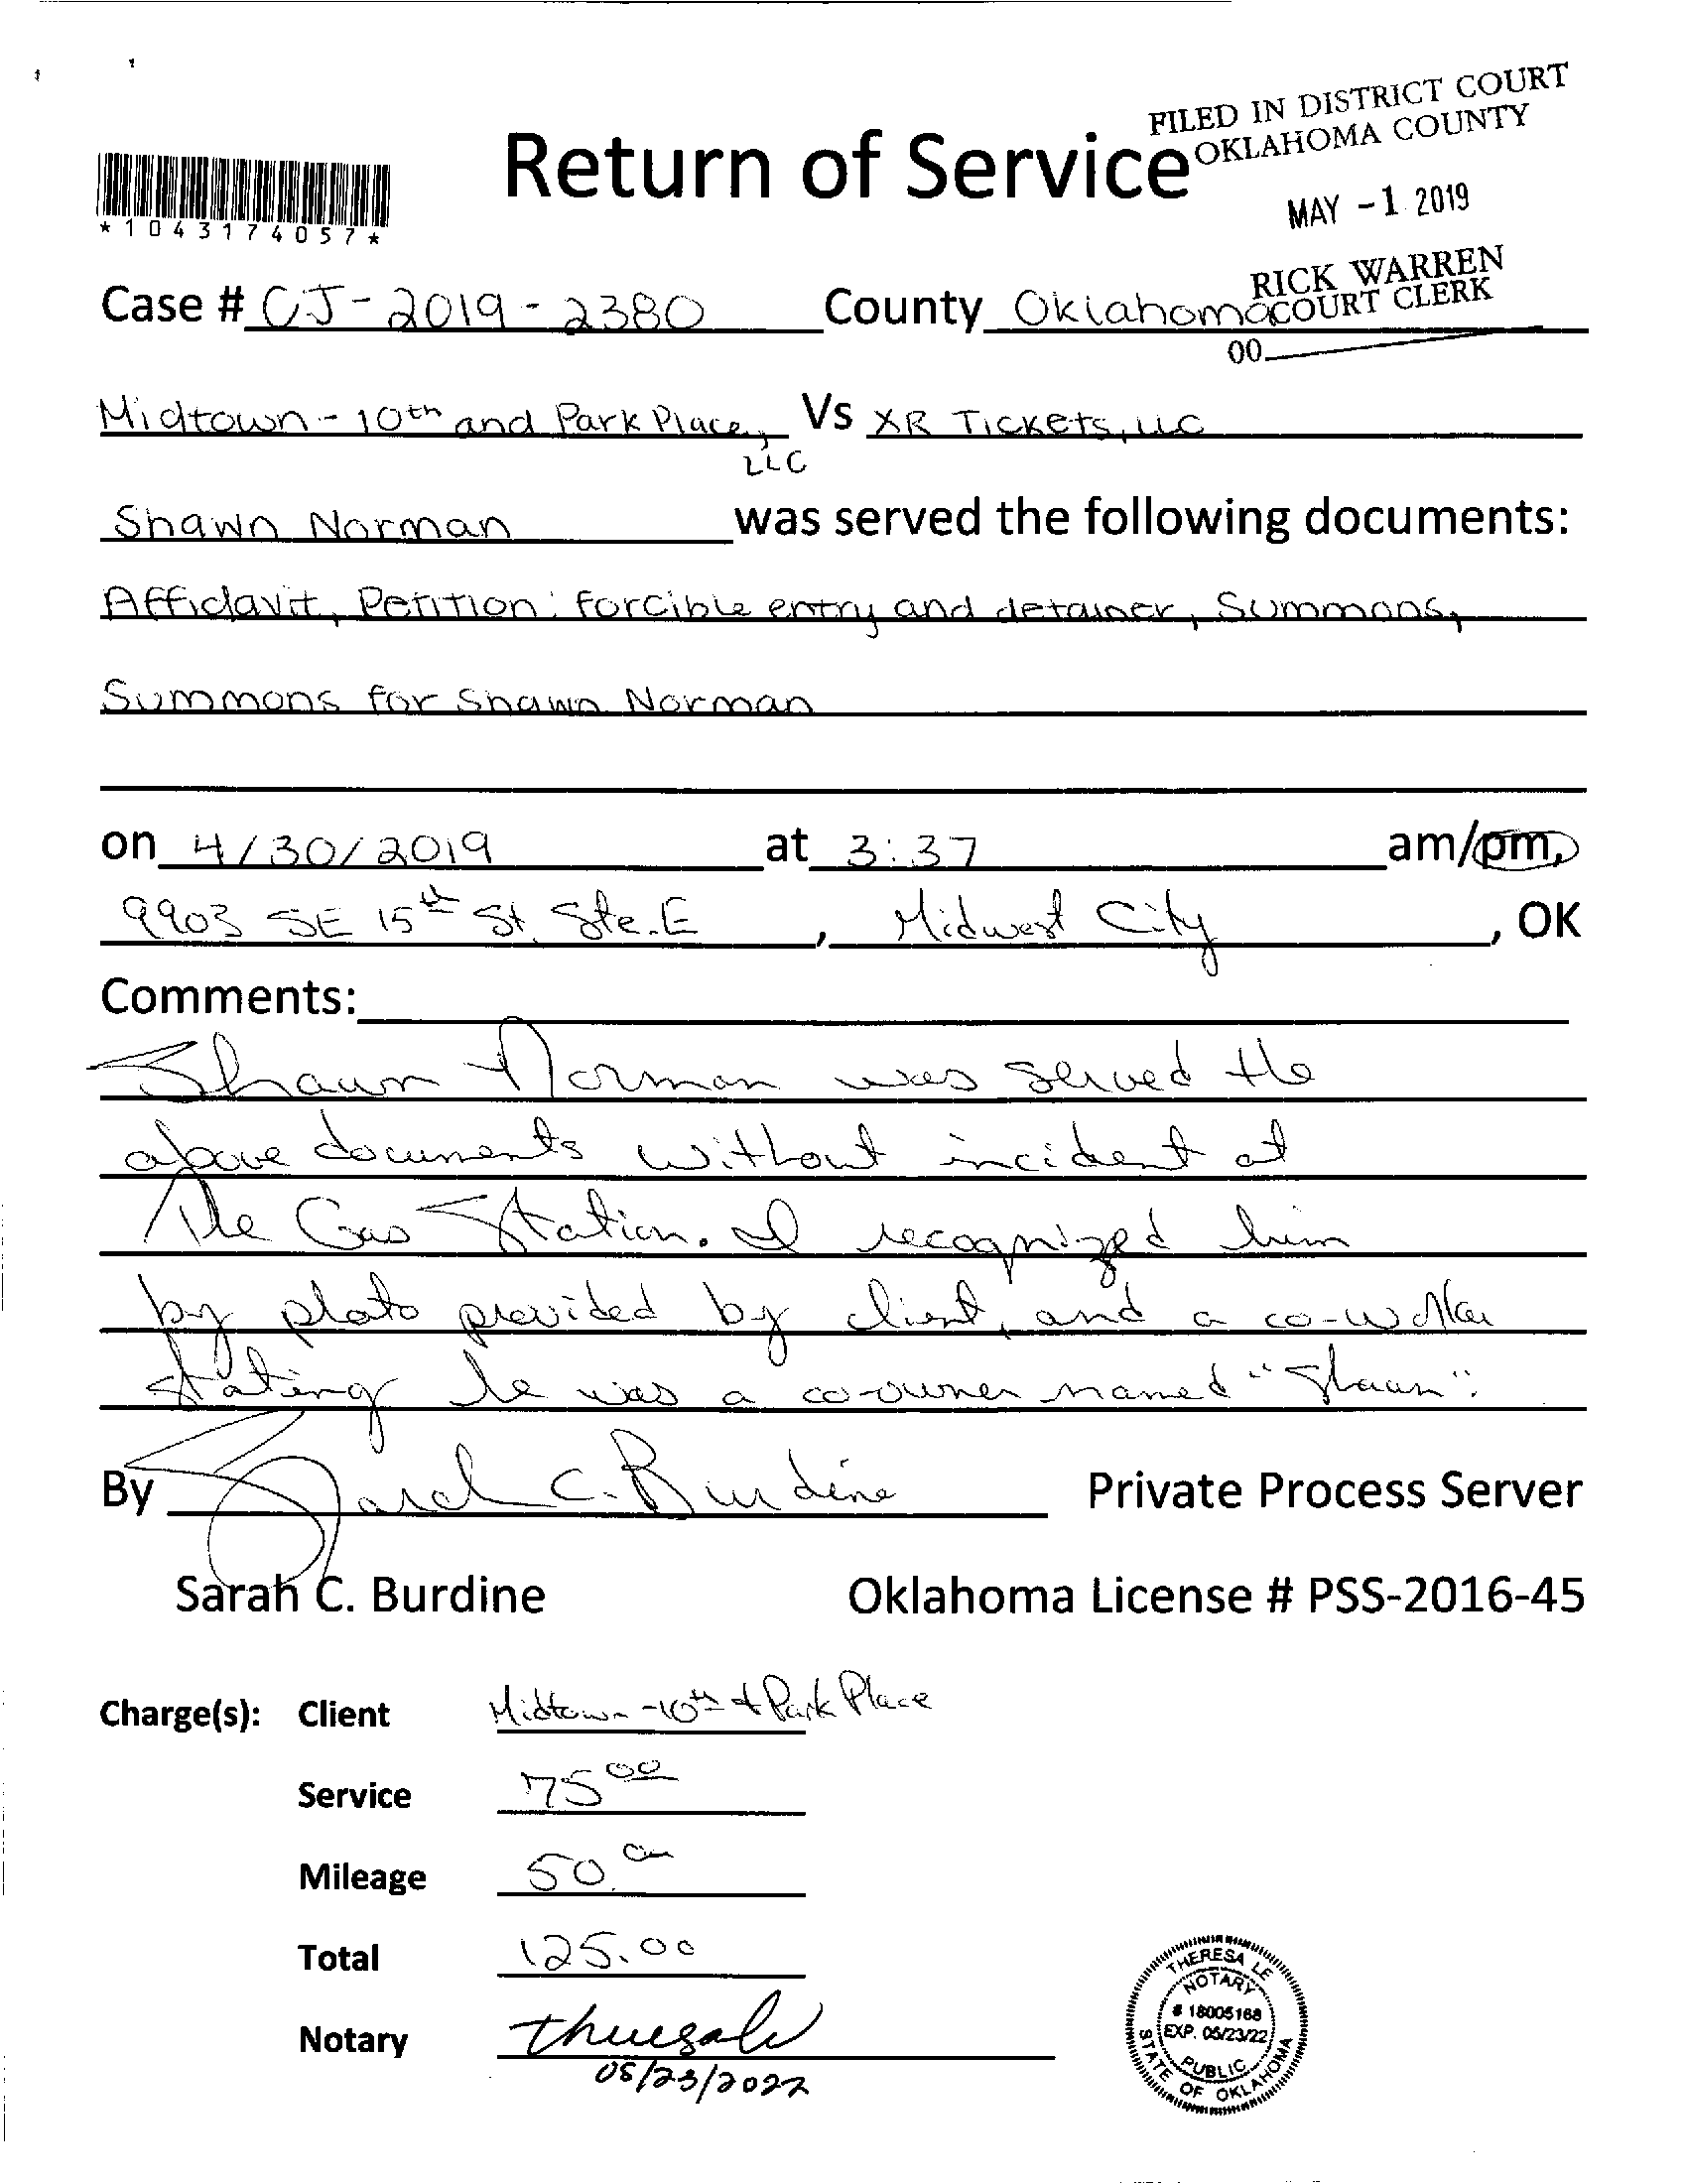 FILED IN DISTRICT COURT
OKLAHOMA COUNTY
Return of Service
MAY -1 2019
*1043174057*
RICK WARREN
COURT CLERK
Case # CJ-2019-2380 County Oklahoma
00
Midtown-10th and Park Place, Vs XR Tickets, LLC
LLC
Shawn Norman was served the following documents:
Affidavit, Petition: forcible entry and detainer, Summons,
Summons for Shawn Norman
on 4/30/2019 at 3:37 am/pm,
9903 SE 15th St. Ste. E, Midwest City, OK
Comments:
Shawn Norman was served the
above documents without incident at
The Gas Station. I recognized him
by photo provided by client, and a co-worker
stating he was a co-owner named "Shaun".
By Sarah C. Burdine Private Process Server
Sarah C. Burdine Oklahoma License # PSS-2016-45
Charge(s): Client Midtown-10th & Park Place
Service 75 00
Mileage 50.00
Total 125.00
Notary
05/23/2022
THERESA LE
NOTARY
# 18005168
EXP. 05/23/22
PUBLIC
STATE OF OKLAHOMA